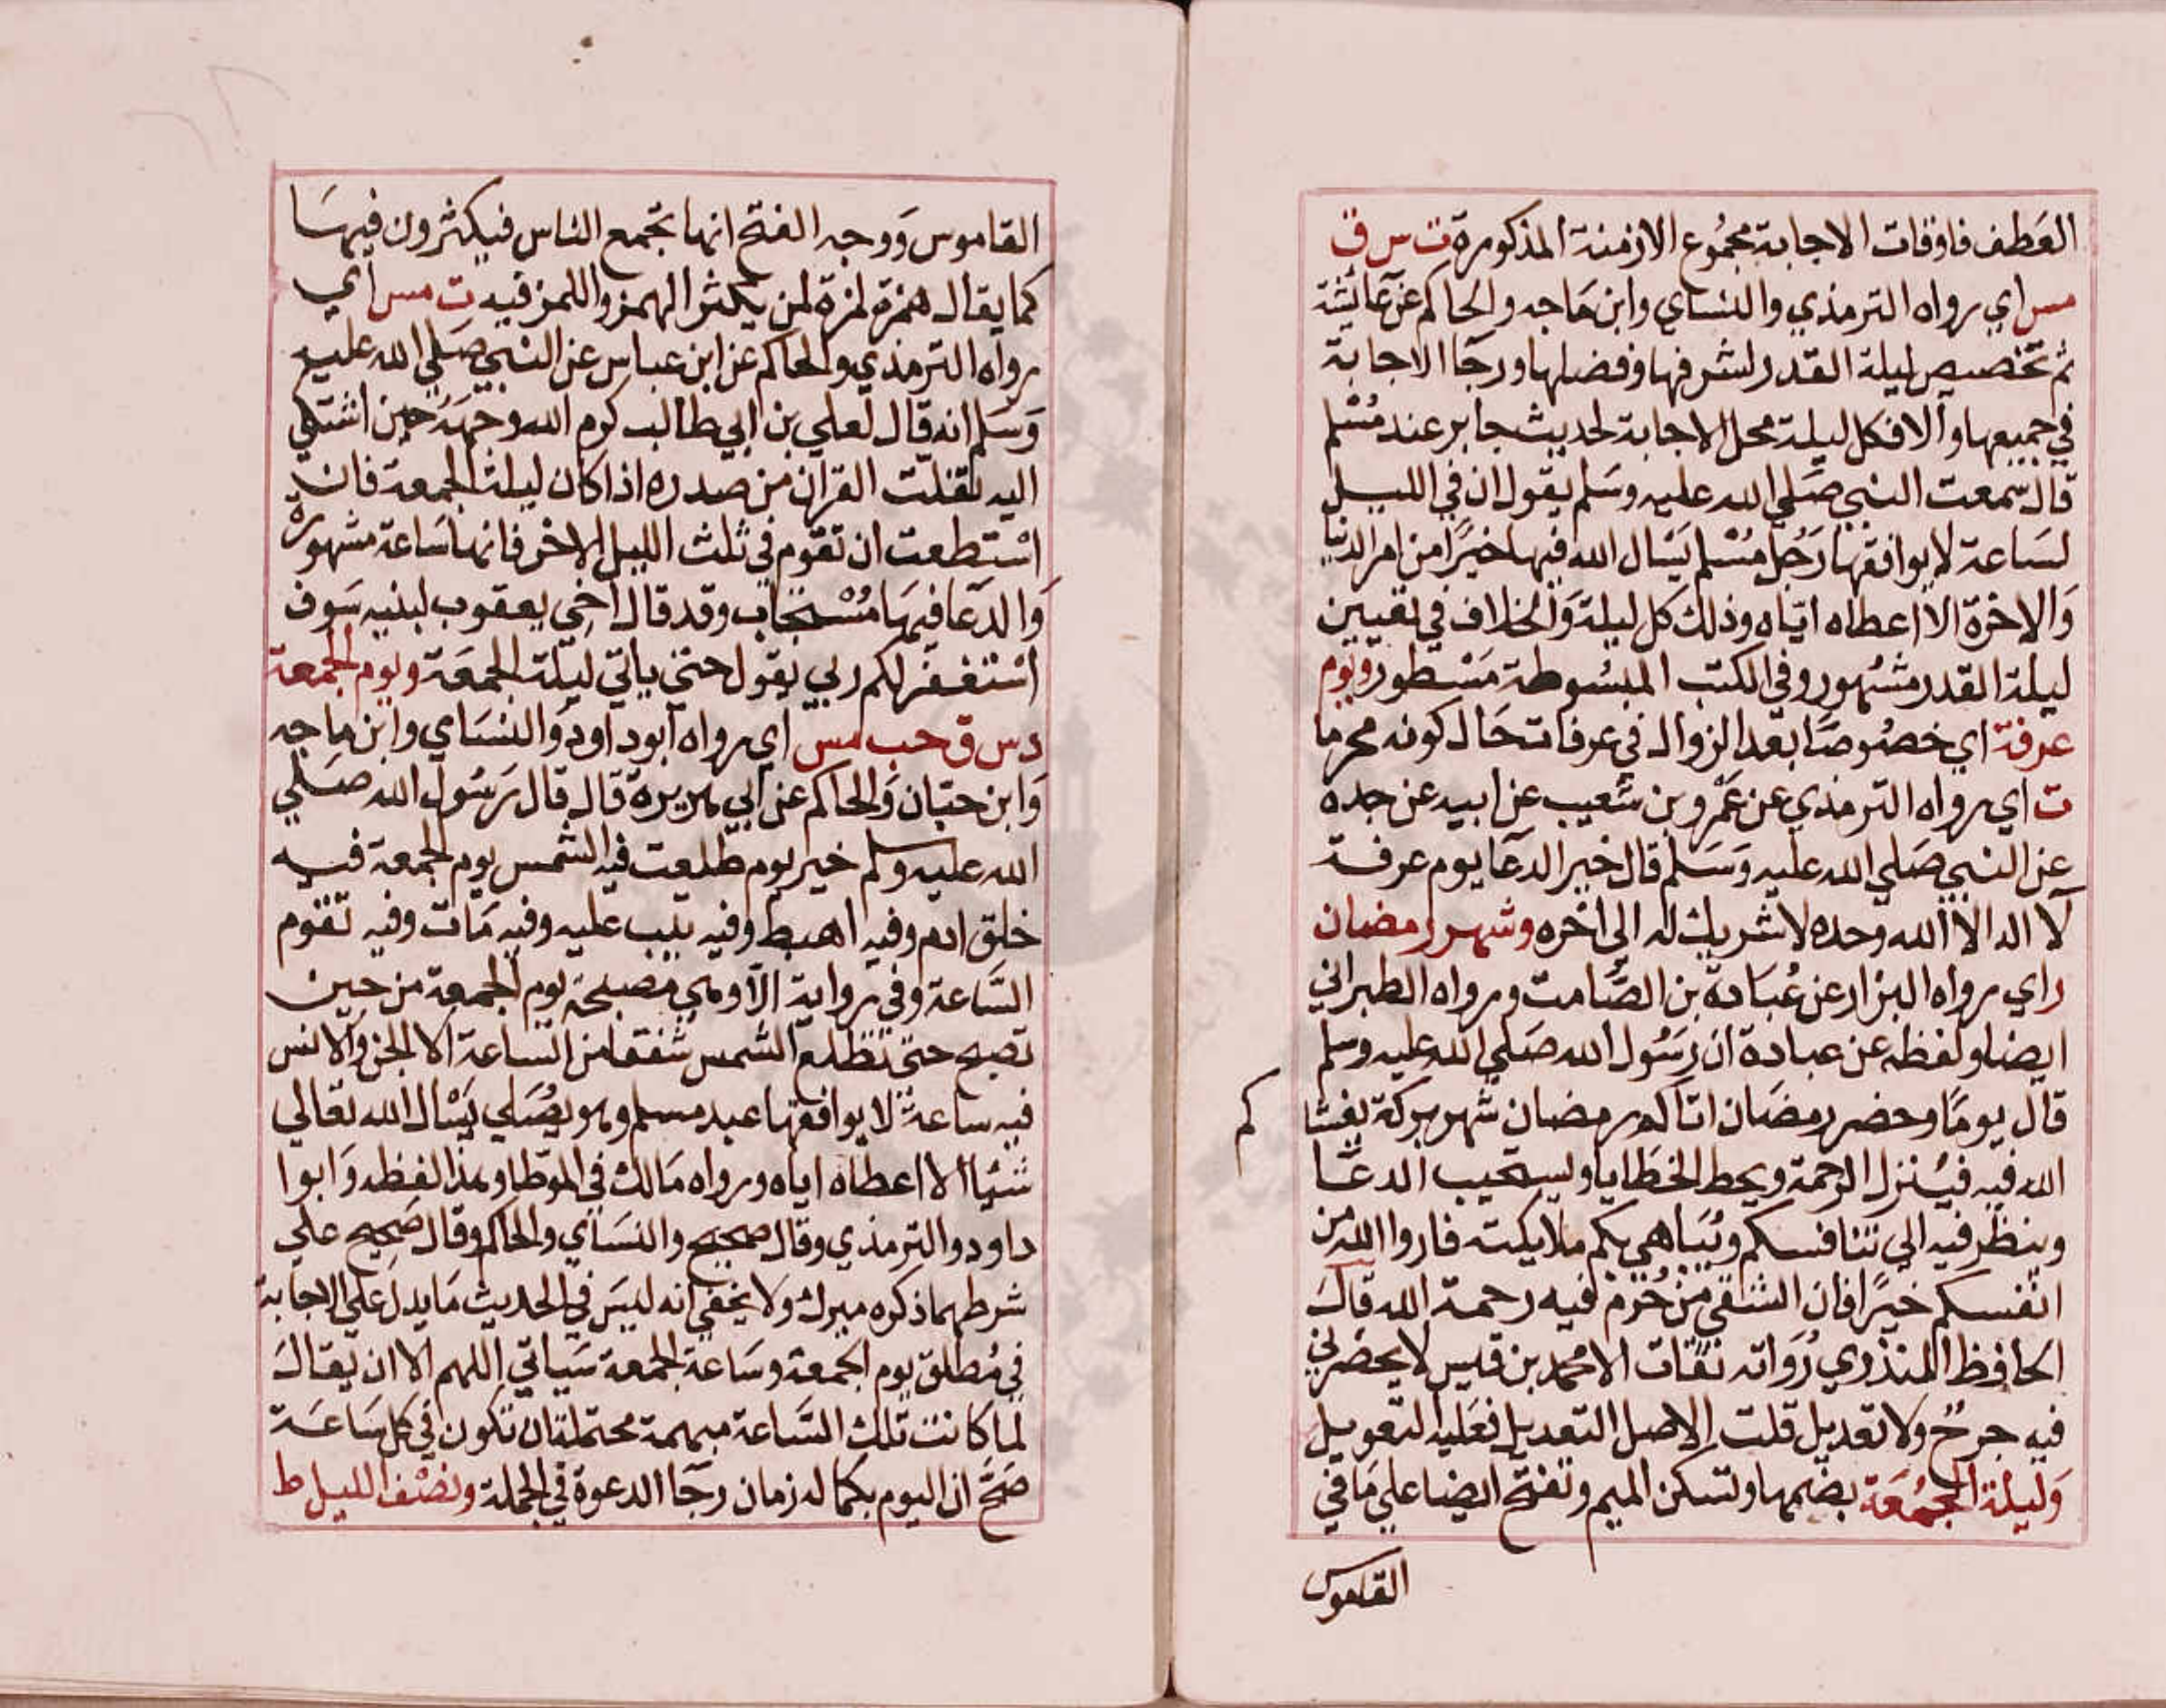 العطف فاوقات الاجابة مجموع الازمنة المذكورة ت س ق
مس اي رواه الترمذي والنساي وابن ماجه والحاكم عن عائشة
ثم تخصيص ليلة القدر لشرفها وفضلها ورجا الاجابة
في جميعها والا فكل ليلة محل الاجابة لحديث جابر عند مسلم
قال سمعت النبي صلي الله عليه وسلم يقول ان في الليل
لساعة لا يوافقها رجل مسلم يسال الله فيها خيرا من امر الدنيا
والاخرة الا اعطاه اياه وذلك كل ليلة والخلاف في تعيين
ليلة القدر مشهور وفي الكتب المبسوطة مسطور ويوم
عرفة اي خصوصا بعد الزوال في عرفات حال كونه محرما
ت اي رواه الترمذي عن عمرو بن شعيب عن ابيه عن جده
عن النبي صلي الله عليه وسلم قال خير الدعا يوم عرفة
لا اله الا الله وحده لا شريك له الي اخره وشهر رمضان
ر اي رواه البزار عن عبادة بن الصامت ورواه الطبراني
ايضا ولفظه عن عبادة ان رسول الله صلي الله عليه وسلم
قال يوما وحضر رمضان اتاكم رمضان شهر بركة يغشا
كم
الله فيه فينزل الرحمة ويحط الخطايا ويستجيب الدعا
وينظر فيه الي تنافسكم ويباهي بكم ملايكته فاروا الله من
انفسكم خيرا فان الشقي من حرم فيه رحمة الله قال
الحافظ المنذري رواته ثقات الا محمد بن قيس لا يحضرني
فيه جرح ولا تعديل قلت الاصل التعديل فعليه التعويل
وليلة الجمعة بضمها وتسكن الميم وتفتح ايضا علي ما في
القاموس
القاموس ووجه الفتح انها تجمع الناس فيكثرون فيها
كما يقال همزة لمزة لمن يكثر الهمز واللمز فيه ت مس اي
رواه الترمذي والحاكم عن ابن عباس عن النبي صلي الله عليه
وسلم انه قال لعلي بن ابي طالب كرم الله وجهه حين اشتكي
اليه تفلت القران من صدره اذا كان ليلة الجمعة فان
استطعت ان تقوم في ثلث الليل الاخر فانها ساعة مشهورة
والدعا فيها مستجاب وقد قال اخي يعقوب لبنيه سوف
استغفر لكم ربي يقول حتي ياتي ليلة الجمعة ويوم الجمعة
د س ق حب مس اي رواه ابو داود والنساي وابن ماجه
وابن حبان والحاكم عن ابي هريرة قال قال رسول الله صلي
الله عليه وسلم خير يوم طلعت فيه الشمس يوم الجمعة فيه
خلق ادم وفيه اهبط وفيه تيب عليه وفيه مات وفيه تقوم
الساعة وفي رواية الا وهي مصيخة يوم الجمعة من حين
تصبح حتي تطلع الشمس شفقا من الساعة الا الجن والانس
فيه ساعة لا يوافقها عبد مسلم وهو يصلي يسال الله تعالي
شيا الا اعطاه اياه ورواه مالك في الموطا وهذا لفظه وابوا
داود والترمذي وقال صحيح والنساي والحاكم وقال صحيح علي
شرطهما ذكره ميرك ولا يخفي انه ليس في الحديث ما يدل علي الاجابة
في مطلق يوم الجمعة وساعة الجمعة سياتي اللهم الا ان يقال
لما كانت تلك الساعة مبهمة محتملة ان تكون في كل ساعة
صح ان اليوم بكماله زمان رجا الدعوة في الجملة ونصف الليل ط